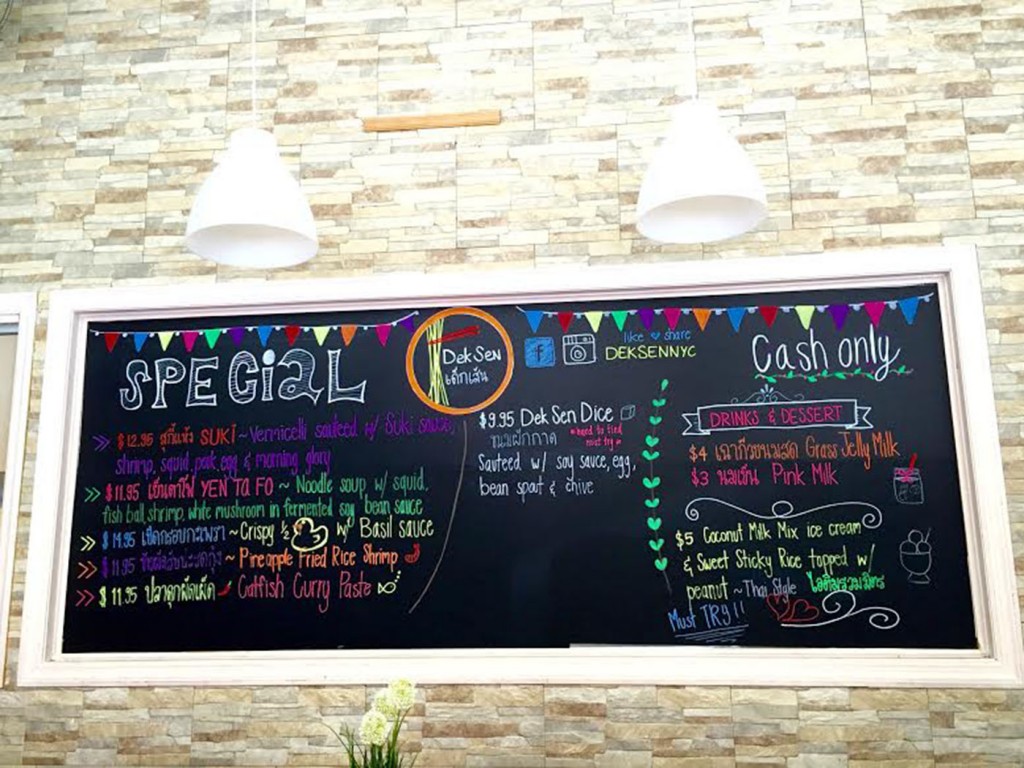 SPECiaL
$12.95 สุกี้แห้ง SUKi ~ Vermicelli sauteed w/ Suki sauce,
shrimp, squid, pork, egg & morning glory
$11.95 เย็นตาโฟ YEN Ta FO ~ Noodle soup w/ squid,
fish ball, shrimp, white mushroom in fermented soy bean sauce
$14.95 เป็ดกรอบกะเพรา ~ Crispy ½ w/ Basil sauce
$11.95 ~ Pineapple Fried Rice Shrimp
$11.95 ปลาดุกผัดเผ็ด Catfish Curry Paste
Dek Sen
เด็กเส้น
f
like ♥ share
DEKSENNYC
$9.95 Dek Sen Dice
ขนมผักกาด
Sauteed w/ soy sauce, egg,
bean spout & chive
Cash only
DRINKS & DESSERT
$4 เฉาก๊วยนมสด Grass Jelly Milk
$3 นมเย็น Pink Milk
$5 Coconut Milk Mix ice cream
& Sweet Sticky Rice topped w/
peanut ~ Thai Style ไอติมรวมมิตร
Must TRY!!